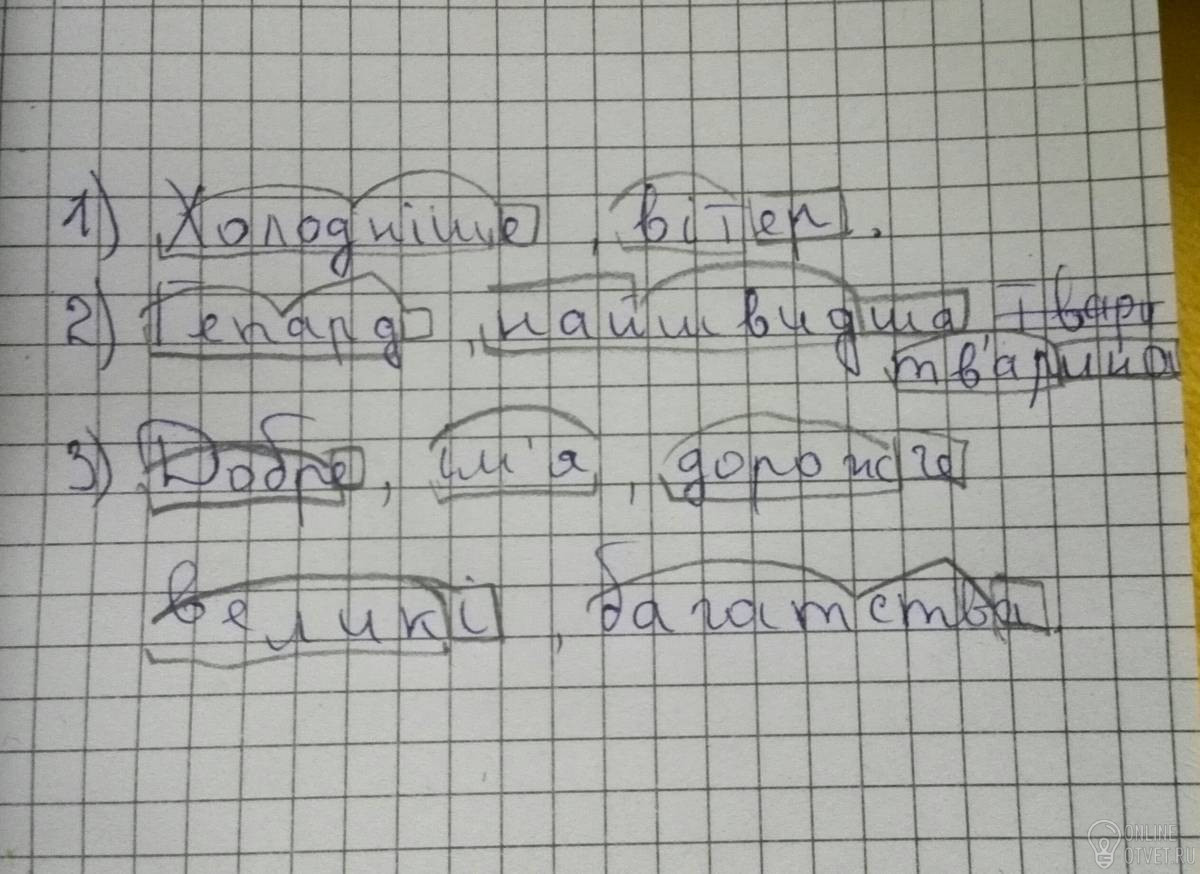 1) Холодніше, вітер.
2) Гепард, найшвидша твари
тварина
3) Добре, ім'я, дорожче
великі, багатства
ONLINE
OTVET.RU